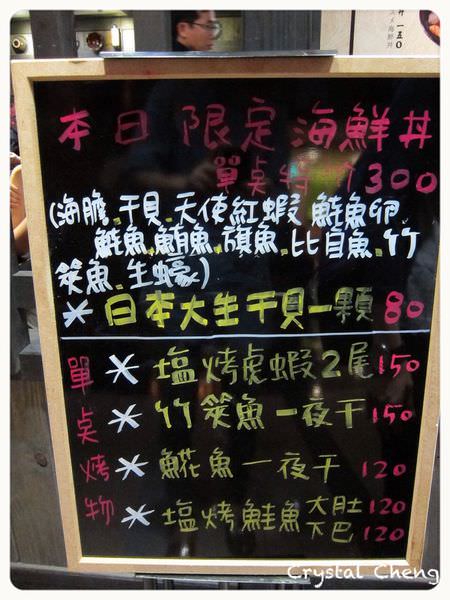 本日限定海鮮丼
單桌特價300
(海膽.干貝.天使紅蝦.鮭魚卵.
鮭魚.鮪魚.旗魚.比目魚.竹
筴魚.生蠔)
*日本大生干貝一顆 80
單桌烤物
*塩烤虎蝦2尾 150
*竹筴魚一夜干 150
*鯡魚一夜干 120
*塩烤鮭魚 大肚 120
下巴 120
Crystal Cheng